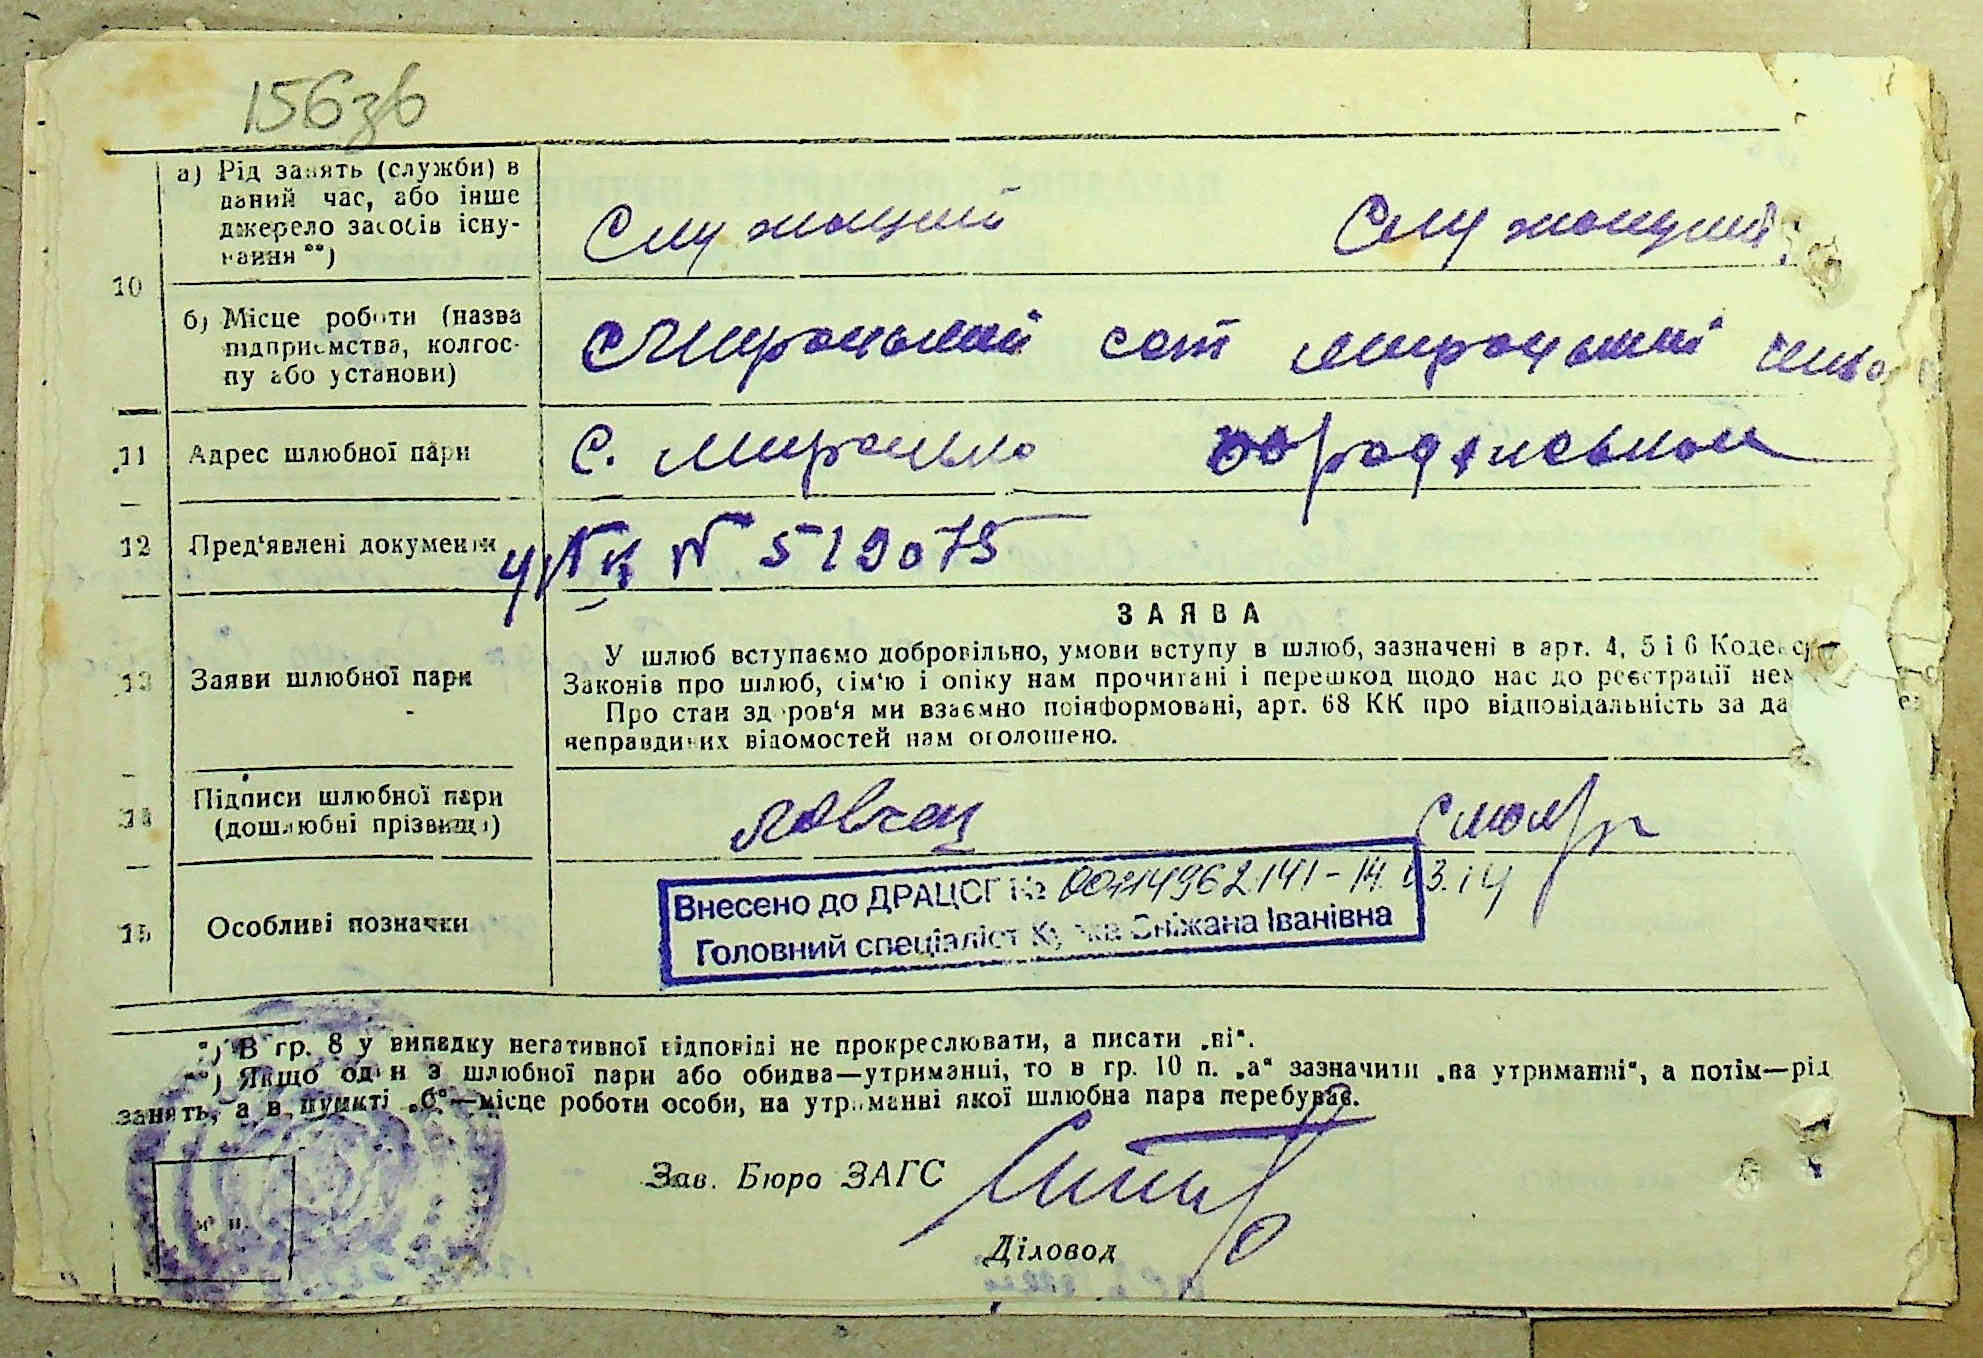 156зв
а) Рід занять (служби) в
даний час, або інше
джерело засобів існу-
вання **)
Служащий Служащий
10
б) Місце роботи (назва
підприємства, колгос-
пу або установи)
сот
11 Адрес шлюбної пари
с.
12 Пред‘явлені документи
№ 519075
ЗАЯВА
13 Заяви шлюбної пари
У шлюб вступаємо добровільно, умови вступу в шлюб, зазначені в арт. 4, 5 і 6 Кодексу
Законів про шлюб, сім‘ю і опіку нам прочитані і перешкод щодо нас до реєстрації нем
Про стан здоров‘я ми взаємно поінформовані, арт. 68 КК про відповідальність за да
неправдивих відомостей нам оголошено.
14 Підписи шлюбної пари
(дошлюбні прізвища)
15 Особливі позначки
Внесено до ДРАЦСГ № 00714962141-14.03.14
Головний спеціаліст Сніжана Іванівна
*) В гр. 8 у випадку негативної відповіді не прокреслювати, а писати „ні“.
**) Якщо один з шлюбної пари або обидва—утриманці, то в гр. 10 п. „а“ зазначити „на утриманні“, а потім—рід
занять, а в пункті „б“—місце роботи особи, на утриманні якої шлюбна пара перебуває.
Зав. Бюро ЗАГС
м. п.
Діловод